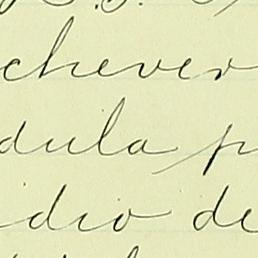 chever
dula p
dio de